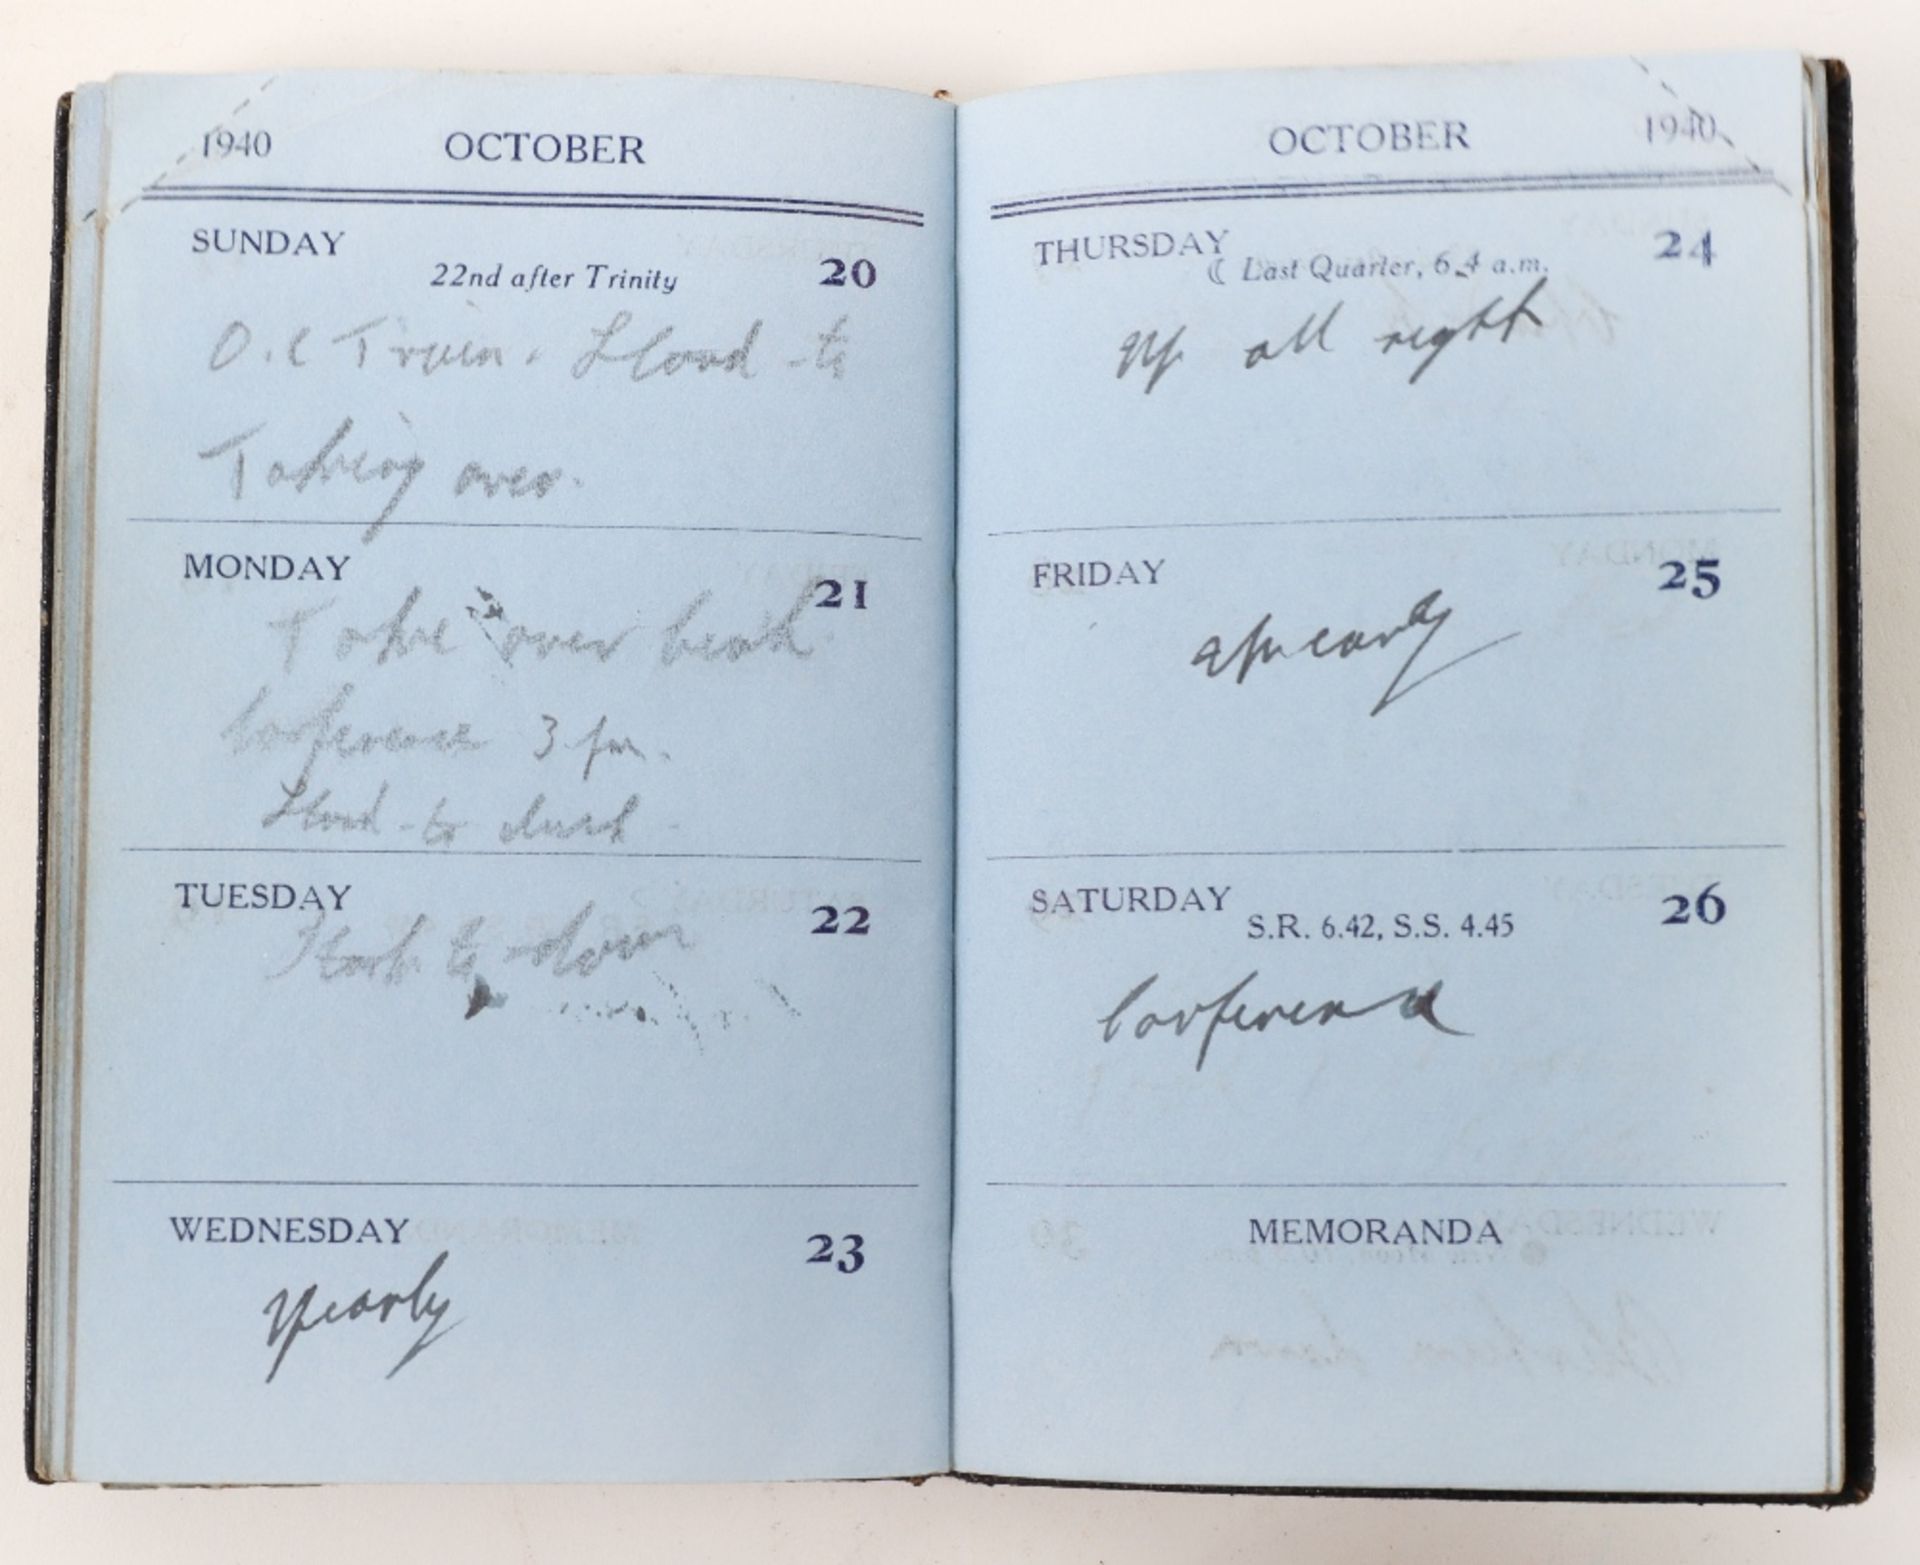 1940 OCTOBER
SUNDAY 20
22nd after Trinity
O.C Train. Stand-to
Taking over.
MONDAY 21
Take over beach
Conference 3 pm.
Stand-to dusk
TUESDAY 22
Stand to dawn
WEDNESDAY 23
Up early
OCTOBER 1940
THURSDAY 24
☾ Last Quarter, 6.4 a.m.
Up all night
FRIDAY 25
Up early
SATURDAY 26
S.R. 6.42, S.S. 4.45
Conference
MEMORANDA